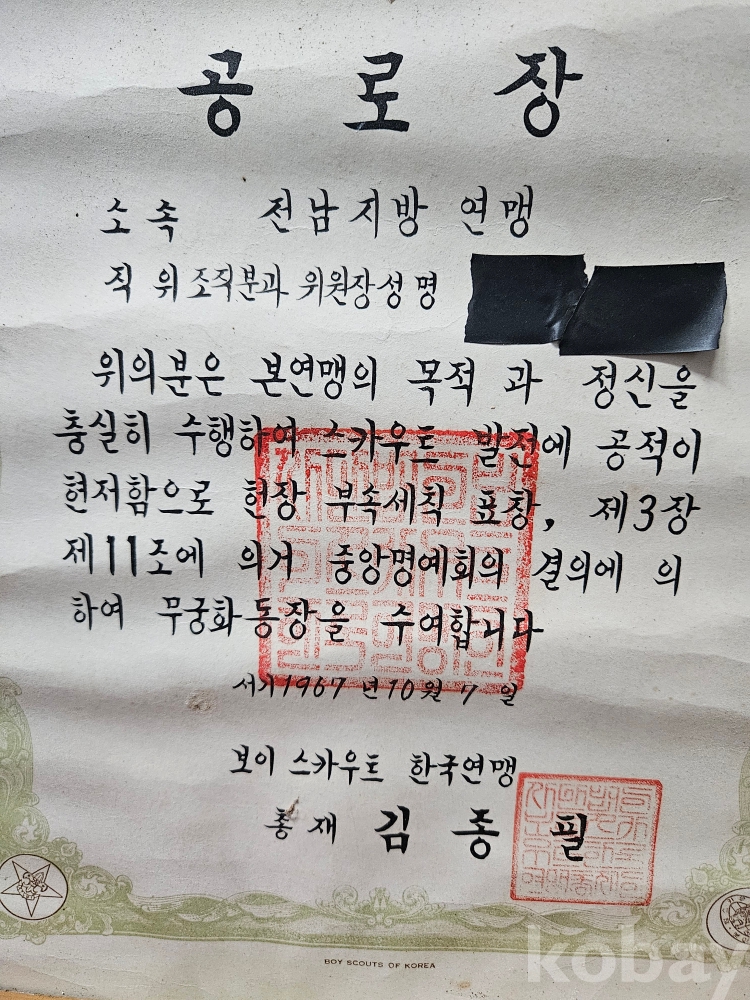 공로장
소속 전남지방 연맹
직위 조직분과 위원장 성명
위의분은 본연맹의 목적과 정신을
충실히 수행하여 스카우트 발전에 공적이
현저함으로 헌장 부속세칙 표창, 제3장
제11조에 의거 중앙명예회의 결의에 의
하여 무궁화동장을 수여합니다
서기 1967년 10월 7일
보이 스카우트 한국연맹
총재 김종필
BOY SCOUTS OF KOREA
kobay